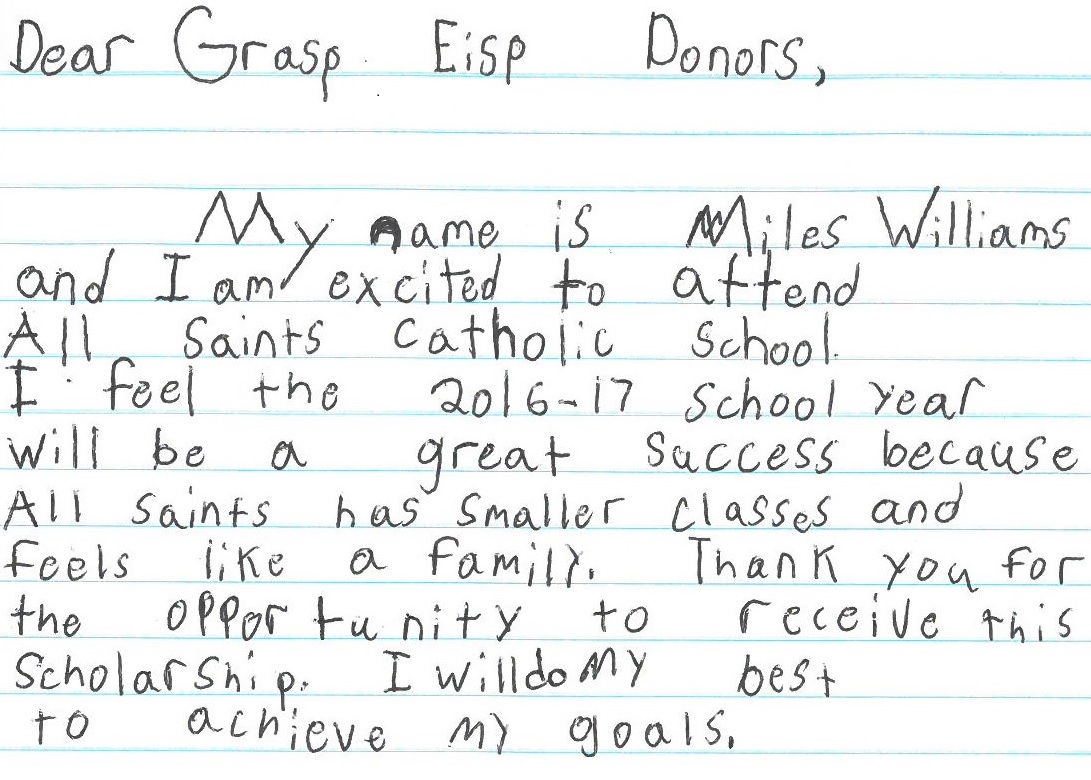 Dear Grasp Eisp Donors,
My name is Miles Williams
and I am excited to attend
All Saints Catholic School.
I feel the 2016-17 school year
will be a great success because
All Saints has smaller classes and
feels like a family. Thank you for
the opportunity to receive this
Scholarship. I will do my best
to achieve my goals.